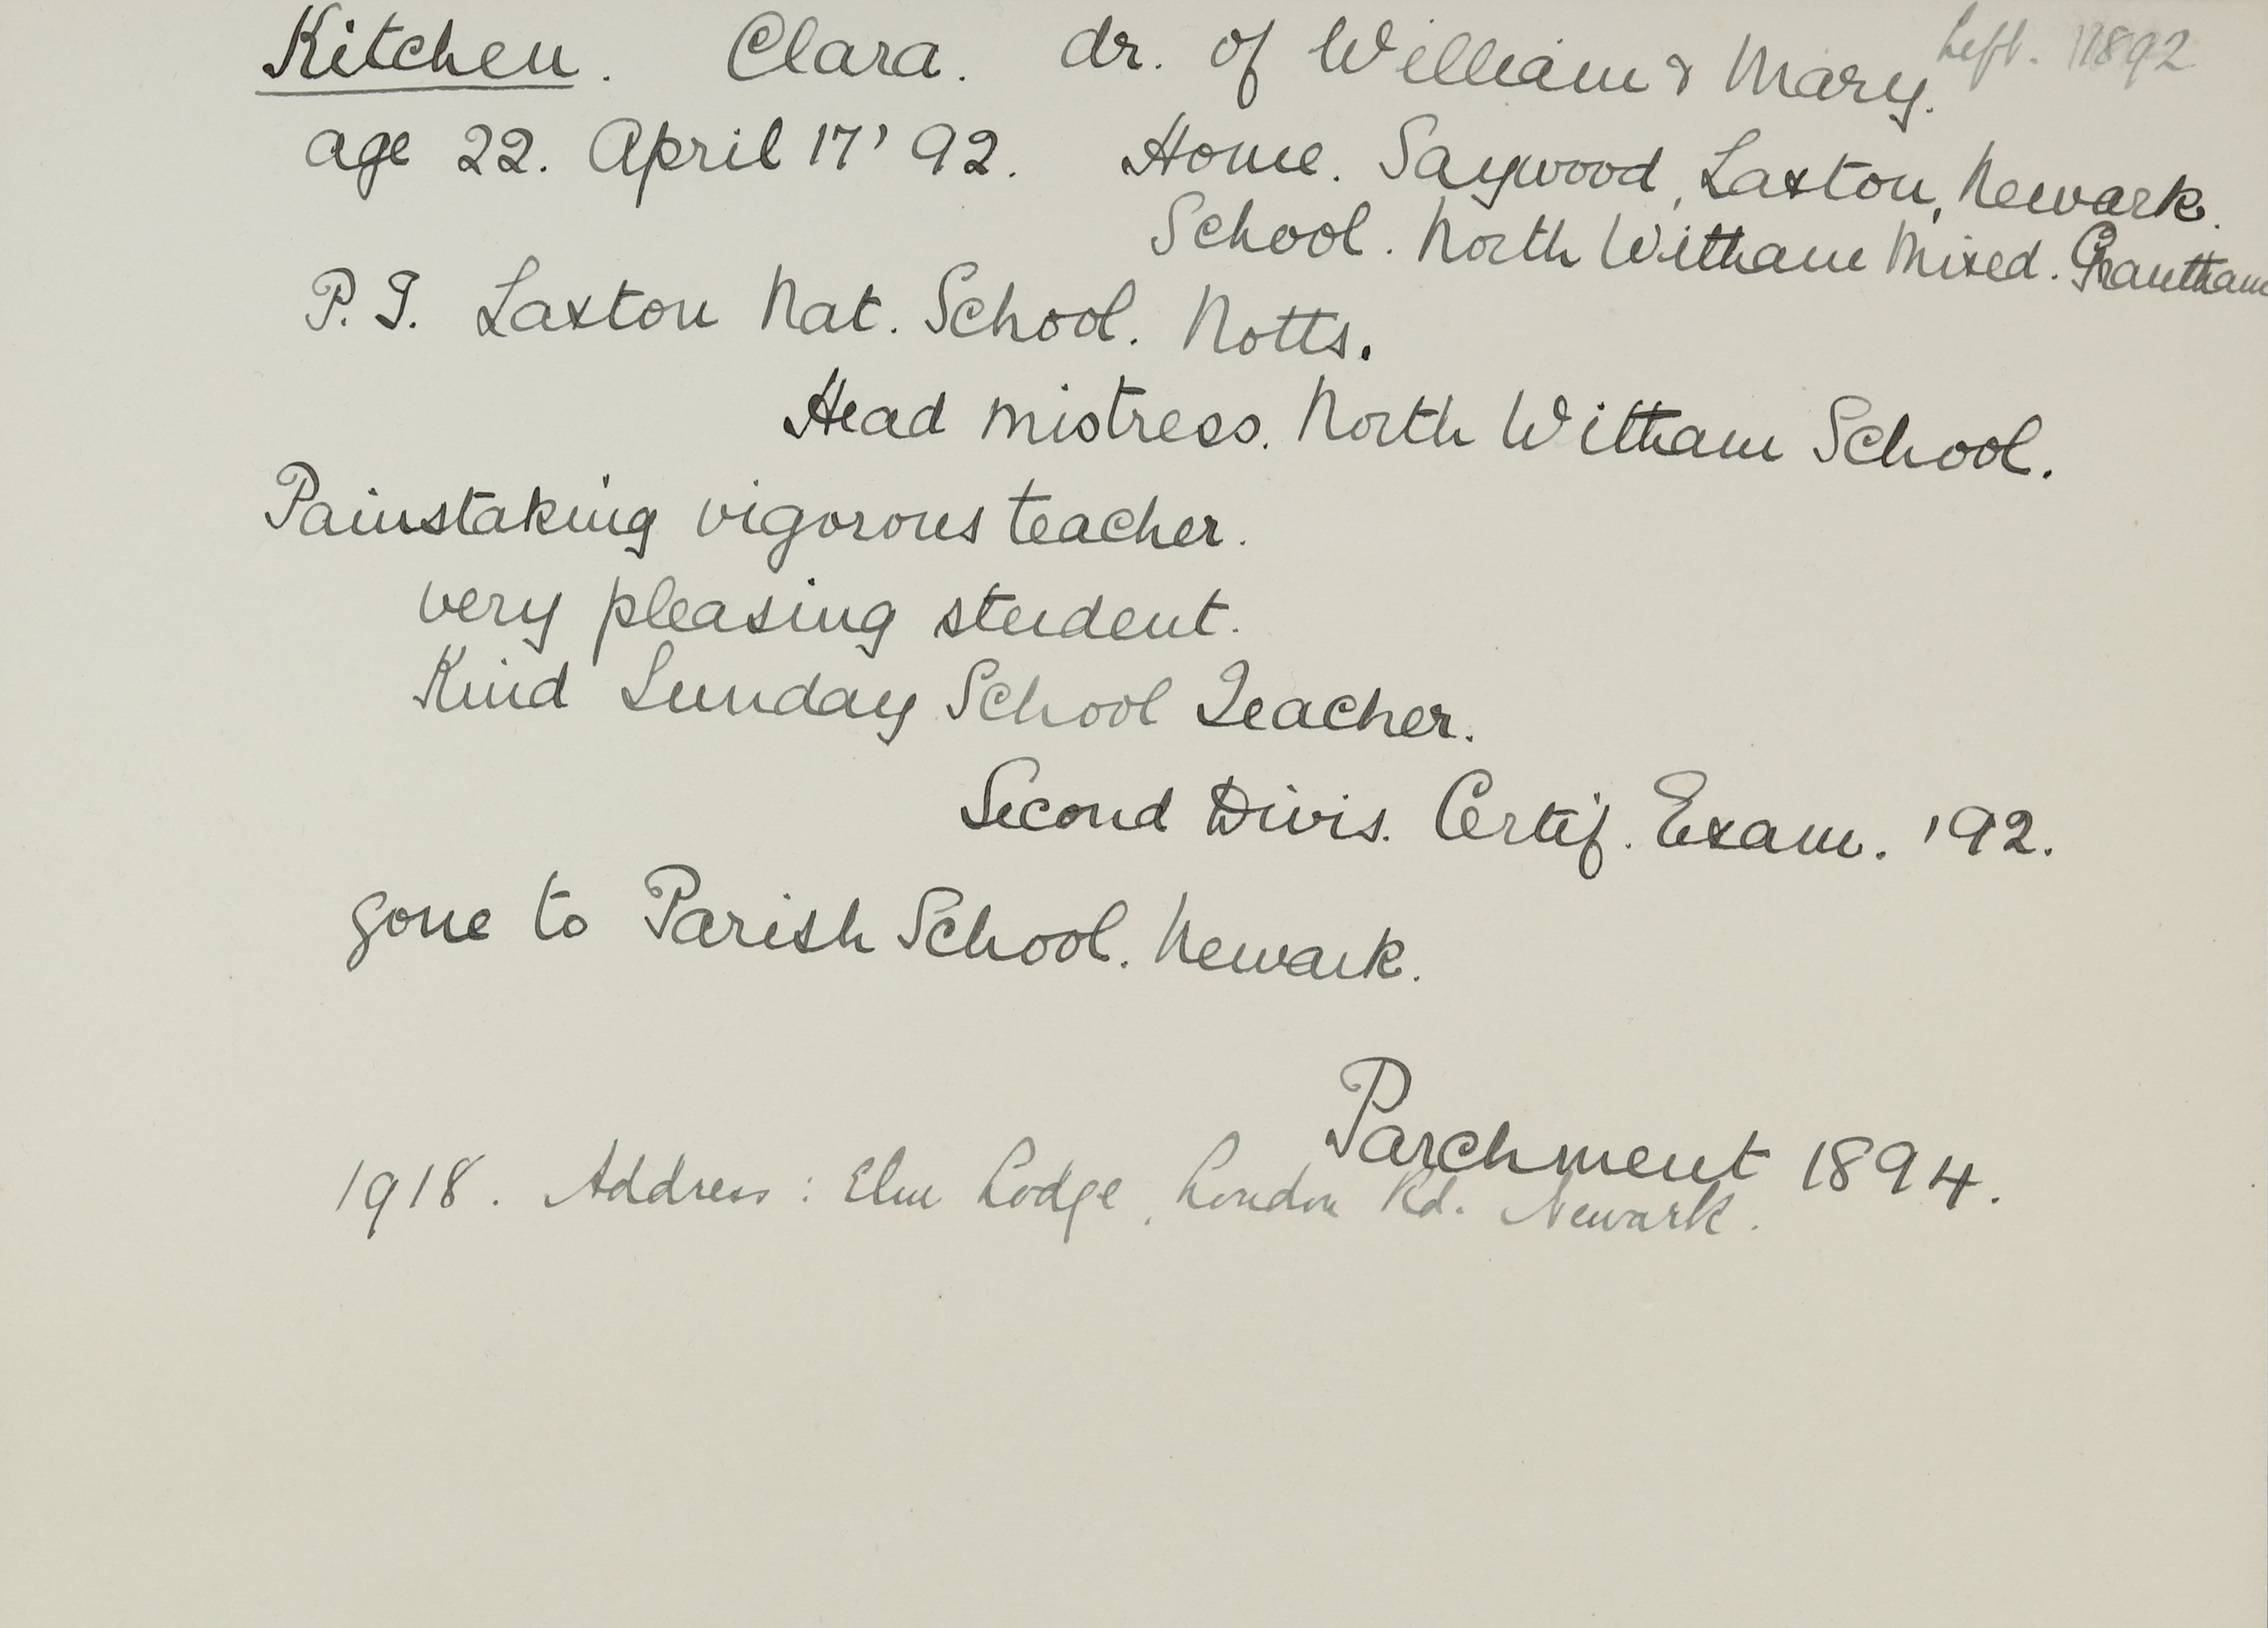 Kitchen. Clara. dr. of William & Mary. Left. 1892
age 22. April 17' 92. Home. Saywood, Laxton, Newark.
School. North Witham Mixed. Grantham
P.T. Laxton Nat. School. Notts.
Head mistress. North Witham School.
Painstaking vigorous teacher.
very pleasing student.
Kind Sunday School Teacher.
Second Divis. Certif. Exam. '92.
gone to Parish School. Newark.
Parchment 1894.
1918. Address: Elm Lodge, London Rd. Newark.